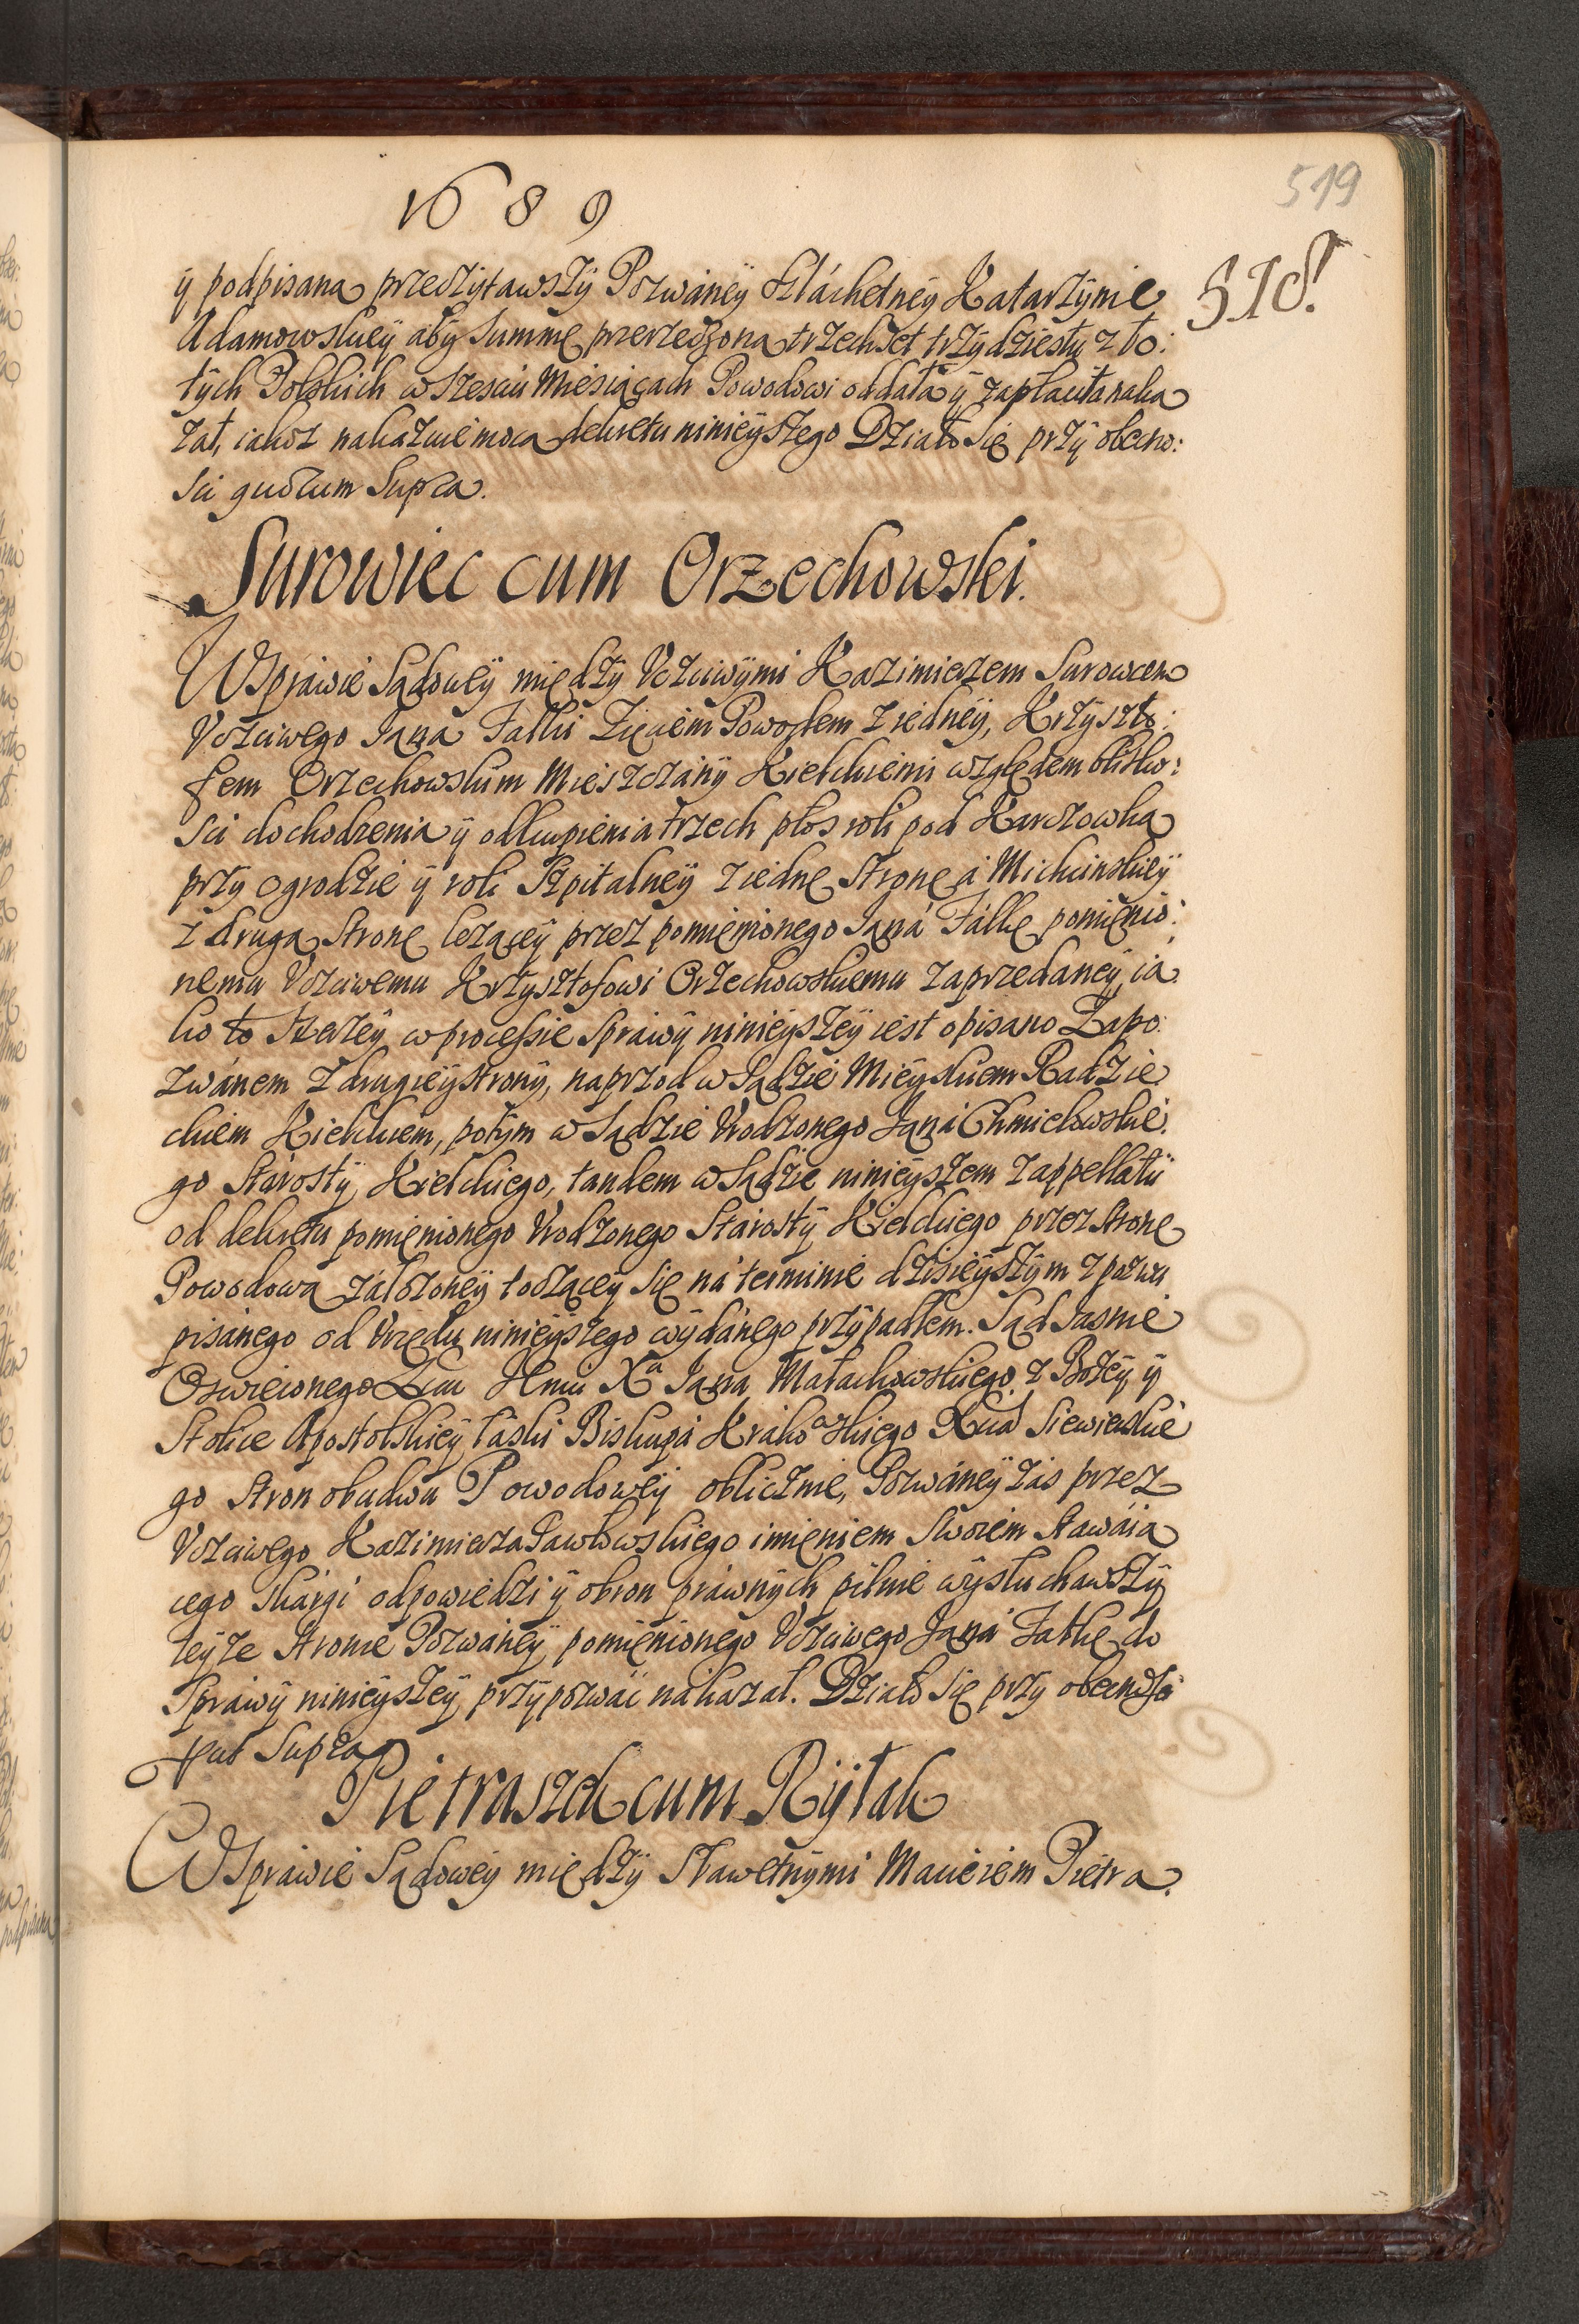 1689
519
518.
ÿ podpisana przeczytawszÿ Pozwáneÿ Szláchetneÿ Katarzÿnie
Adamowskieÿ abÿ Summę przerzeczoną trzechset trzÿdziestu zło:
tÿch Polskich w szesciu Miesiącach Powodowi oddałá ÿ zapłaciła naka
zał, iakoż nakazuie mocą dekretu ninieÿszego Działo się przÿ obecno:
sci quorum Supra.
Surowiec cum Orzechowski.
W Spráwie Sądoweÿ międzÿ Vczciwÿmi Kazimierzem Surowcem
Vczciwego Jana Fałki Zięciem Powodem z iedneÿ, Krzÿszto:
fem Orzechowskim Mieszczánÿ Kielckiemi względem blisko:
sci dochodzenia ÿ odkupienia trzech płos roli pod Karczowką
przÿ ogrodzie ÿ roli Szpitalneÿ z iedne Stronę á Michcinskieÿ
z drugą Stronę leząceÿ przez pomienionego Janá Fałkę pomienio:
nemu Vczciwemu Krzÿsztofowi Orzechowskiemu zaprzedaneÿ, iá
ko to szerzeÿ w processie Spráwÿ ninieÿszeÿ iest opisano Zapo:
zwánem z drugieÿ stronÿ, naprzod w Sądzie Mieÿskiem Radzie
ckiem Kielckiem, potÿm w Sądzie Vrodzonego Janá Chmielowskie:
go Stárostÿ Kielckiego, tandem w Sądzie ninieÿszem z appellatÿ
od dekretu pomienionego Vrodzonego Stárostÿ Kielckiego przez Stronę
Powodową záłożoneÿ tocząceÿ się ná terminie dzisieÿszÿm z pozwu
pisánego od Vrzędu ninieÿszego wÿdánego przÿpadłem. Sąd Jasnie
Oswieconego Xcia Jmci Xa Jana Małachowskiego z Bozeÿ ÿ
Stolice Apostolskieÿ łáski Biskupá Krakowskiego Xcia Siewierskie
go Stron obudwu Powodoweÿ oblicznie, Pozwáneÿ záś przez
Vczciwego Kazimierza Pawłowskiego imieniem Swoiem Stawáią
cego skárgi odpowiedzi ÿ obron práwnÿch pilnie wÿsłuchawszÿ
teÿże Stronie Pozwáneÿ pomienionego Vczciwego Janá Fałkę do
Spráwÿ ninieÿszeÿ przÿpozwáć nákazał. Działo się przÿ obecnosci
Supra
Pietraszek cum Rÿtak
W Spráwie Sądoweÿ międzÿ Sławetnÿmi Macieiem Pietra.